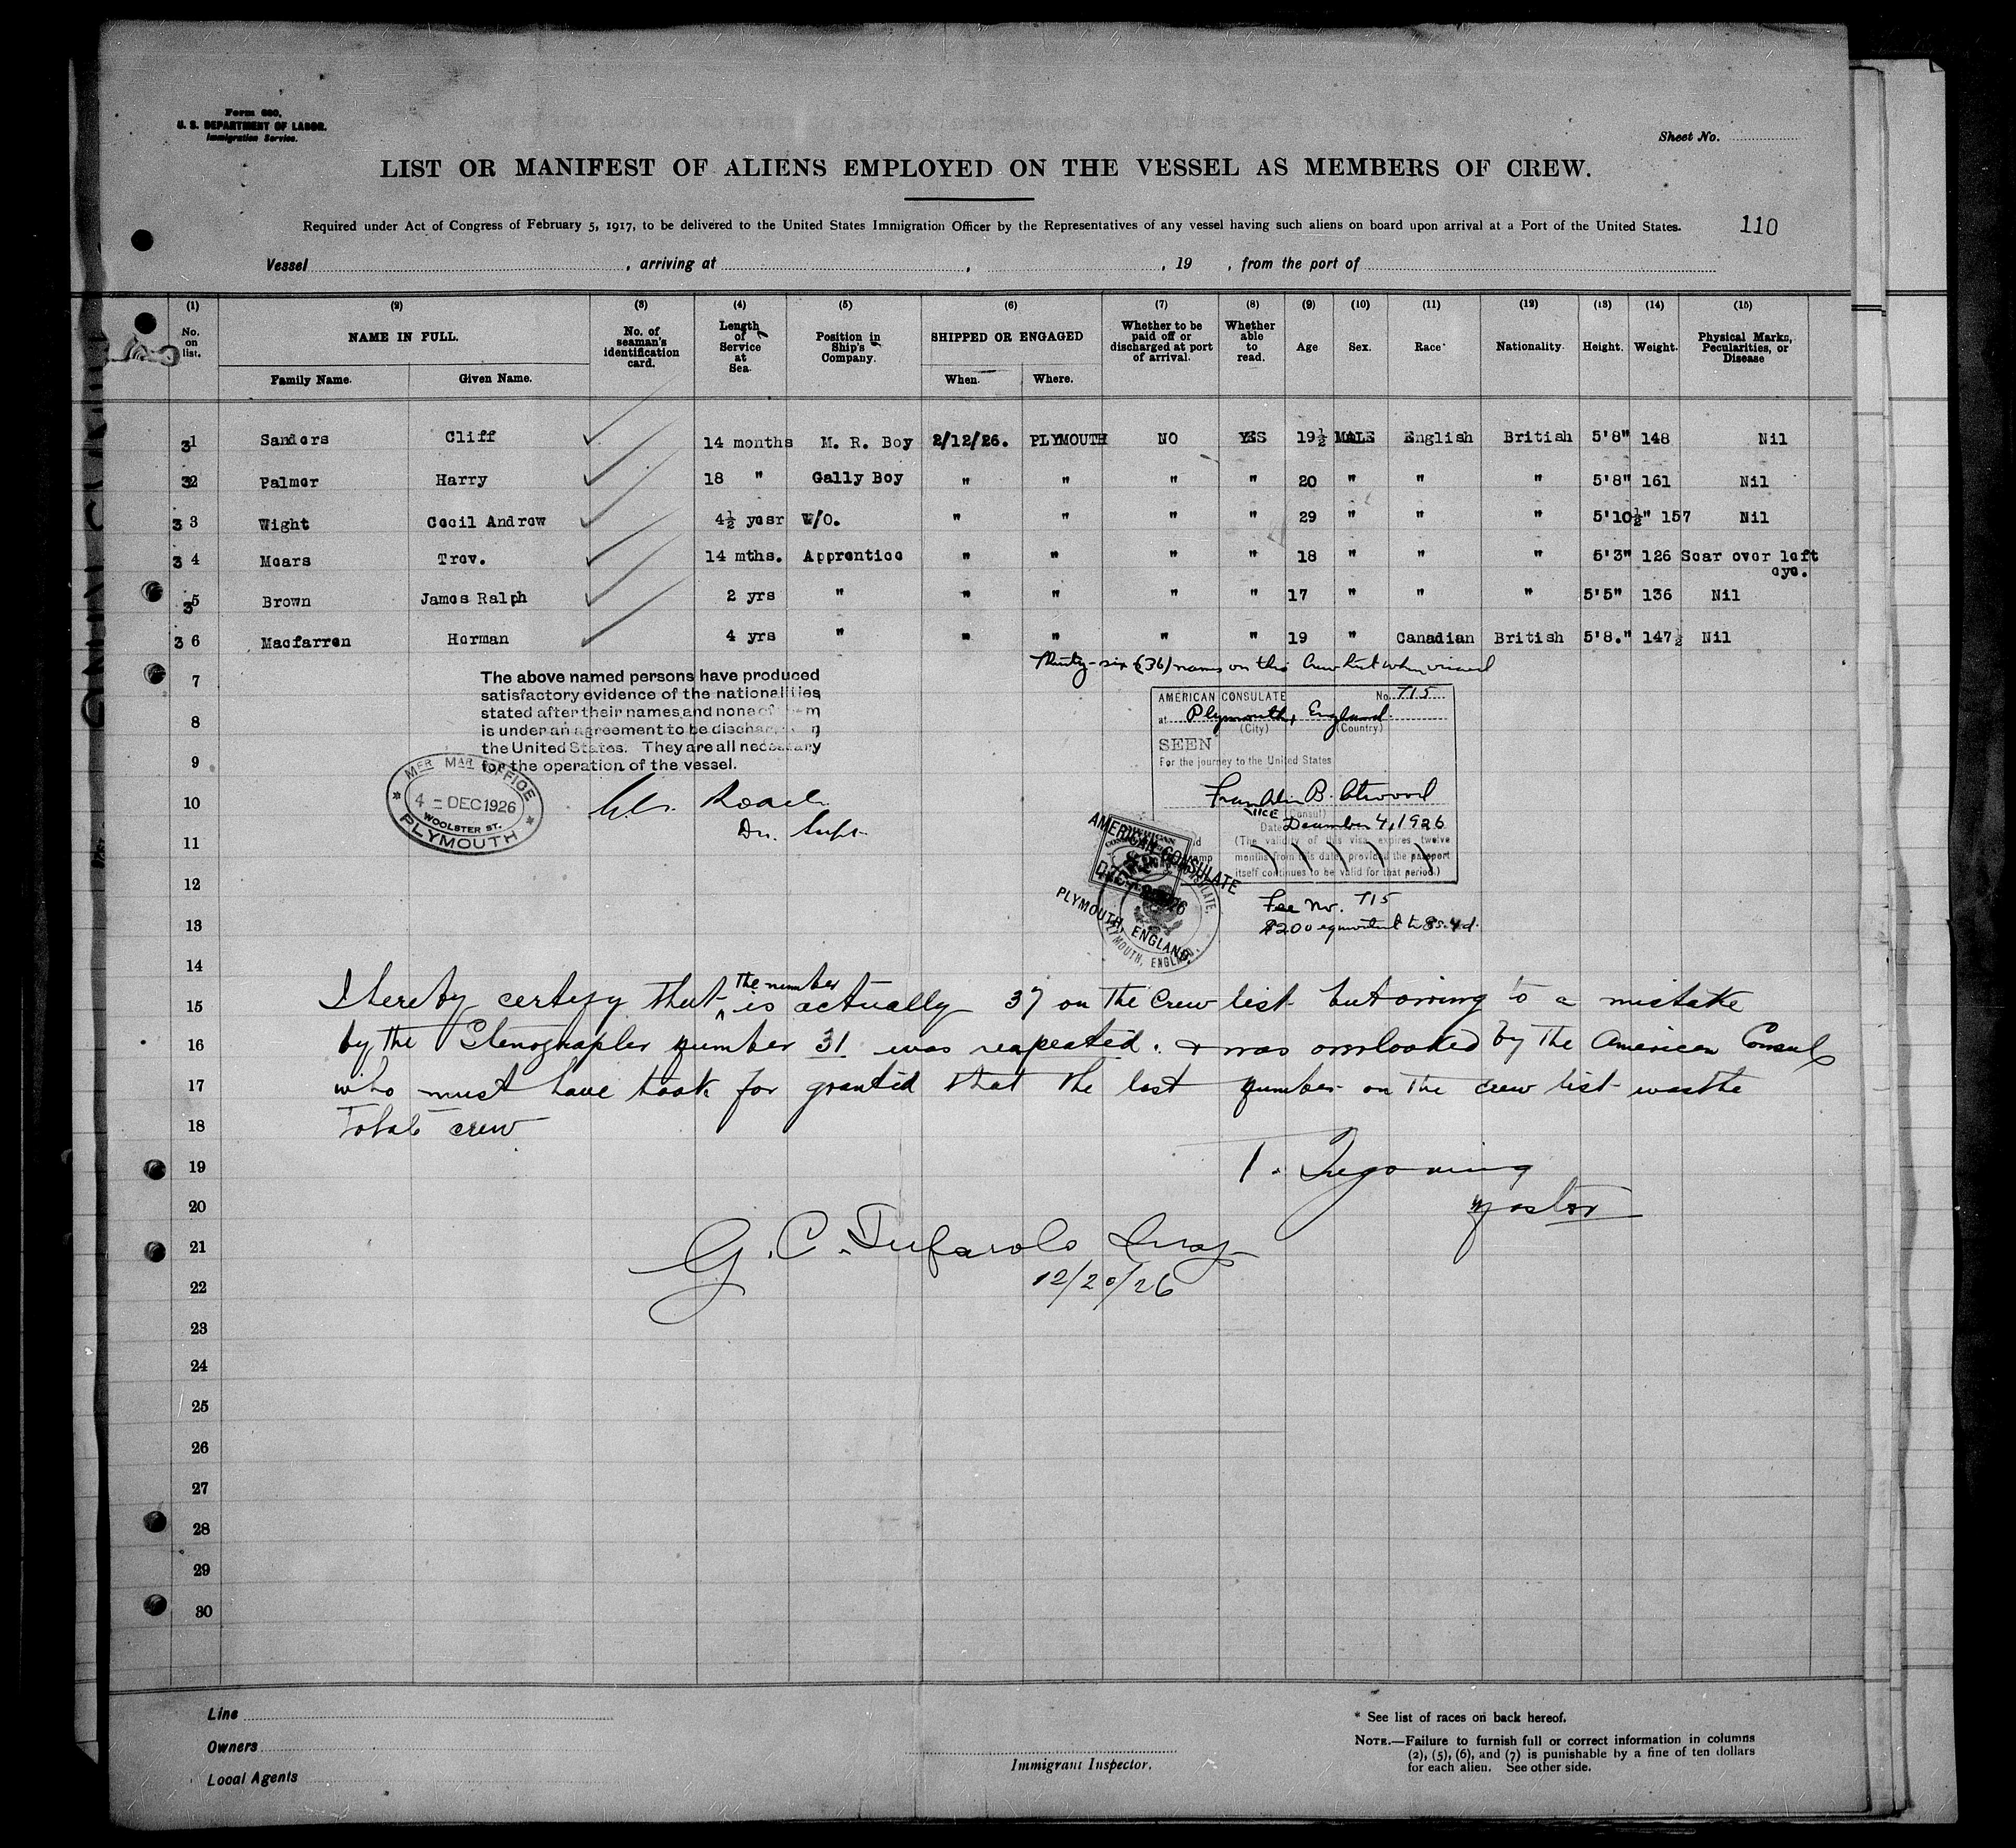 Form 680,
U. S. DEPARTMENT OF LABOR.
Immigration Service.
Sheet No.
LIST OR MANIFEST OF ALIENS EMPLOYED ON THE VESSEL AS MEMBERS OF CREW.
Required under Act of Congress of February 5, 1917, to be delivered to the United States Immigration Officer by the Representatives of any vessel having such aliens on board upon arrival at a Port of the United States.
110
Vessel , arriving at , , 19 , from the port of
(1) (2) (3) (4) (5) (6) (7) (8) (9) (10) (11) (12) (13) (14) (15)
No. on list. NAME IN FULL. No. of seaman's identification card. Length of Service at Sea. Position in Ship's Company. SHIPPED OR ENGAGED Whether to be paid off or discharged at port of arrival. Whether able to read. Age Sex. Race* Nationality. Height. Weight. Physical Marks, Pecularities, or Disease
Family Name. Given Name. When. Where.
31 Sanders Cliff 14 months M. R. Boy 2/12/26. PLYMOUTH NO YES 19½ MALE English British 5'8" 148 Nil
32 Palmer Harry 18 " Gally Boy " " " " 20 " " " 5'8" 161 Nil
3 3 Wight Cecil Andrew 4½ year W/O. " " " " 29 " " " 5'10½" 157 Nil
3 4 Mears Trev. 14 mths. Apprentice " " " " 18 " " " 5'3" 126 Scar over left
eye.
35 Brown James Ralph 2 yrs " " " " " 17 " " " 5'5" 136 Nil
3 6 Macfarren Herman 4 yrs " " " " " 19 " Canadian British 5'8." 147½ Nil
Thirty-six (36) names on this Crew List when visaed
7
8
9
10
11
12
13
14
15
16
17
18
19
20
21
22
23
24
25
26
27
28
29
30
The above named persons have produced
satisfactory evidence of the nationalities
stated after their names and none of them
is under an agreement to be discha
the United States. They are all necessary
for the operation of the vessel.
MER MAR OFFICE
4 - DEC 1926
WOOLSTER ST.
PLYMOUTH
Roach
Supt
AMERICAN CONSULATE No. 715
at Plymouth, England.
(City) (Country)
SEEN
For the journey to the United States
Franklin B. Atwood
VICE (Consul)
Date December 4, 1926
(The validity of this visa expires twelve
months from this date, provided the passport
itself continues to be valid for that period.)
AMERICAN CONSULATE
PLYMOUTH, ENGLAND.
PLYMOUTH, ENGLAND.
Fee No. 715
$2.00 equivalent to 8s. 4d.
I hereby certify that the number is actually 37 on the Crew list but owing to a mistake
by the Stenographer number 31 was reapeated. & was overlooked by the American Consul
who must have took for granted that the last number on the crew list was the
Total crew
Master
G. C. Insp
12/20/26
Line
Owners
Local Agents
Immigrant Inspector.
* See list of races on back hereof.
NOTE.—Failure to furnish full or correct information in columns
(2), (5), (6), and (7) is punishable by a fine of ten dollars
for each alien. See other side.